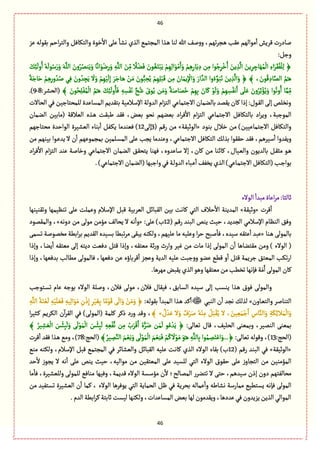 46
صادرت قريش أموالهم عقب هجرتهم، ووصف الله لنا هذا المجتمع الذي نشأ على الأخوة والتكافل والتراحم بقوله عز
وجل:
﴿لِلْفُقَرَاءِ الْمُهَاجِرِينَ الَّذِينَ أُخْرِجُوا مِنْ دِيَارِهِمْ وَأَمْوَالِهِمْ يَبْتَغُونَ فَضْلًا مِّنَ اللَّهِ وَرِضْوَانًا وَيَنْصُرُونَ اللَّهَ وَرَسُولَهُ أُولَئِكَ
هُمُ الصَّادِقُونَ ، وَالَّذِينَ تَبَوَّءُوا الدَّارَ وَالْإِيمَانَ مِنْ قَبْلِهِمْ يُحِبُّونَ مَنْ هَاجَرَ إِلَيْهِمْ وَلَا يَجِدُونَ فِي صُدُورِهِمْ حَاجَةً
مِّمَّا أُوتُوا وَيُؤْثِرُونَ عَلَى أَنْفُسِهِمْ وَلَوْ كَانَ بِهِمْ خَصَاصَةٌ وَمَنْ يُوقَ شُحَّ نَفْسِهِ فَأُولَئِكَ هُمُ الْمُفْلِحُونَ ﴾ (الحشر:8-9).
ونخلص إلى القول: إذا كان يقصد بالضمان الاجتماعي التزام الدولة الإسلامية بتقديم المساعدة للمحتاجين في الحالات
الموجبة، ويراد بالتكافل الاجتماعي التزام الأفراد بعضهم نحو بعض، فقد طبقت هذه العلاقة (مابين الضمان
والتكافل الاجتماعيين) من خلال بنود «الوثيقة» من رقم (3إلى12) فعندما يكفل أبناء العشيرة الواحدة محتاجهم
ويفدوا أسيرهم، فقد حققوا بذلك التكافل الاجتماعي، وعندما يجب على المسلمين بمجموعهم أن لا يدعوا بينهم من
هو مثقل بالديون والعيال، كائنا من كان، إلا ساعدوه، فهنا يتحقق الضمان الاجتماعي وخاصة عند التزام الأفراد
بواجب (التكافل الاجتماعي) الذي يخفف أعباء الدولة في واجبها (الضمان الاجتماعي).
ثالثا: مراعاة مبدأ الولاء
أقرت «وثيقة» المدينة الأحلاف التي كانت بين القبائل العربية قبل الإسلام وعملت على تنظيمها وتقنينها
وفق النظام الإسلامي الجديد، حيث ينص البند رقم (12ب) على: «وأنه لا يحالف مؤمن مولى من دونه»، والمقصود
بالمولى هنا «عبد أعتقه سيده، فأصبح حرا وعليه ما عليهم، ولكنه يبقى مرتبطا بسيده القديم برابطة مخصوصة تسمى
( الولاء ) ومن مقتضاها أن المولى إذا مات من غير وارث ورثة معتقه، وإذا قتل دفعت ديته إلى معتقه أيضا، وإذا
ارتكب المعتق جريمة قتل أو قطع عضو ووجبت عليه الدية وعجز أقرباؤه عن دفعها، فالمولى مطالب بدفعها، وإذا
كان المولى أمة فإنها تخطب من معتقها وهو الذي يقبض مهرها.
والمولى فوق هذا ينسب إلى سيده السابق، فيقال فلان، مولى فلان، وصلة الولاء بوجه عام تستوجب
التناصر والتعاون،» لذلك نجد أن النبي ﷺ أكد هذا المبدأ بقوله: ﴿ وَمَنْ تَوَلَّى قَوْمًا بِغَيْرِ إِذْنِ مَوَالِيهِ فَعَلَيْهِ لَعْنَةُ اللَّهِ
وَالْمَلَائِكَةِ وَالنَّاسِ أَجْمَعِينَ ، لَا يُقْبَلُ مِنْهُ صَرْفٌ وَلَا عَدْلٌ» ﴾، وقد ورد ذكر كلمة (المولى) في القرآن الكريم كثيرا
بمعنى النصير، وبمعنى الحليف، قال تعالى: ﴿ يَدْعُو لَمَنْ ضَرُّهُ أَقْرَبُ مِنْ نَفْعِهِ لَبِئْسَ الْمَوْلَى وَلَبِئْسَ الْعَشِيرُ ﴾
(الحج:13)، وقوله تعالى: ﴿ ...وَاعْتَصِمُوا بِاللَّهِ هُوَ مَوْلَاكُمْ فَنِعْمَ الْمَوْلَى وَنِعْمَ النَّصِيرُ ﴾ (الحج:78)، ومع هذا فقد أقرت
«الوثيقة» في البند رقم (12ب) بقاء الولاء الذي كانت عليه القبائل والعشائر في المجتمع قبل الإسلام، ولكنه منع
المؤمنين من التجاوز على حقوق الولاء التي للسيد على المعتقين من مواليه، حيث ينص على أنه لا يجوز لأحد
محالفتهم دون إذن سيدهم، حتى لا تتضرر المصالح؛ لأن مؤسسة الولاء قديمة، وفيها منافع للمولى وللعشيرة، فأما
المولى فإنه يستطيع ممارسة نشاطه وأعماله بحرية في ظل الحماية التي يوفرها الولاء، كما أن العشيرة تستفيد من
الموالي الذين يزيدون في عددها، ويقدمون لها بعض المساعدات، ولكنها ليست ثابتة كرابطة الدم.
46